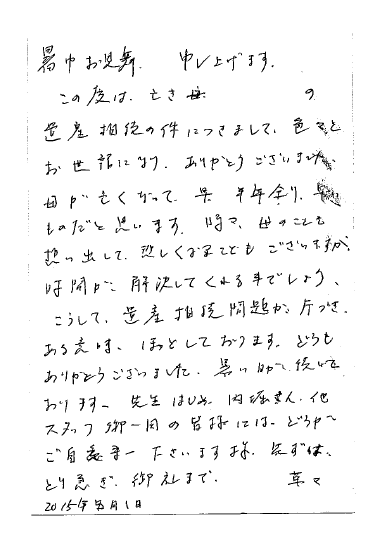 暑中お見舞、申し上げます。
この度は、亡き母 の
遺産相続の件につきまして、色々と
お世話になり、ありがとうございました。
母が亡くなって、早 半年余り、早い
ものだと思います。時々、母のことを
想い出して、恋しくなることもございますが、
時間が、解決してくれる事でしょう、
こうして、遺産相続問題が、片づき、
ある意味、ほっとしております。どうも
ありがとうございました。暑い日が、続いて
おります。先生はじめ、内堀さん、他
スタッフ御一同の皆様には、どうか
ご自愛下さいます様、先ずは、
とり急ぎ、御礼まで。 草々
2015年 月1日